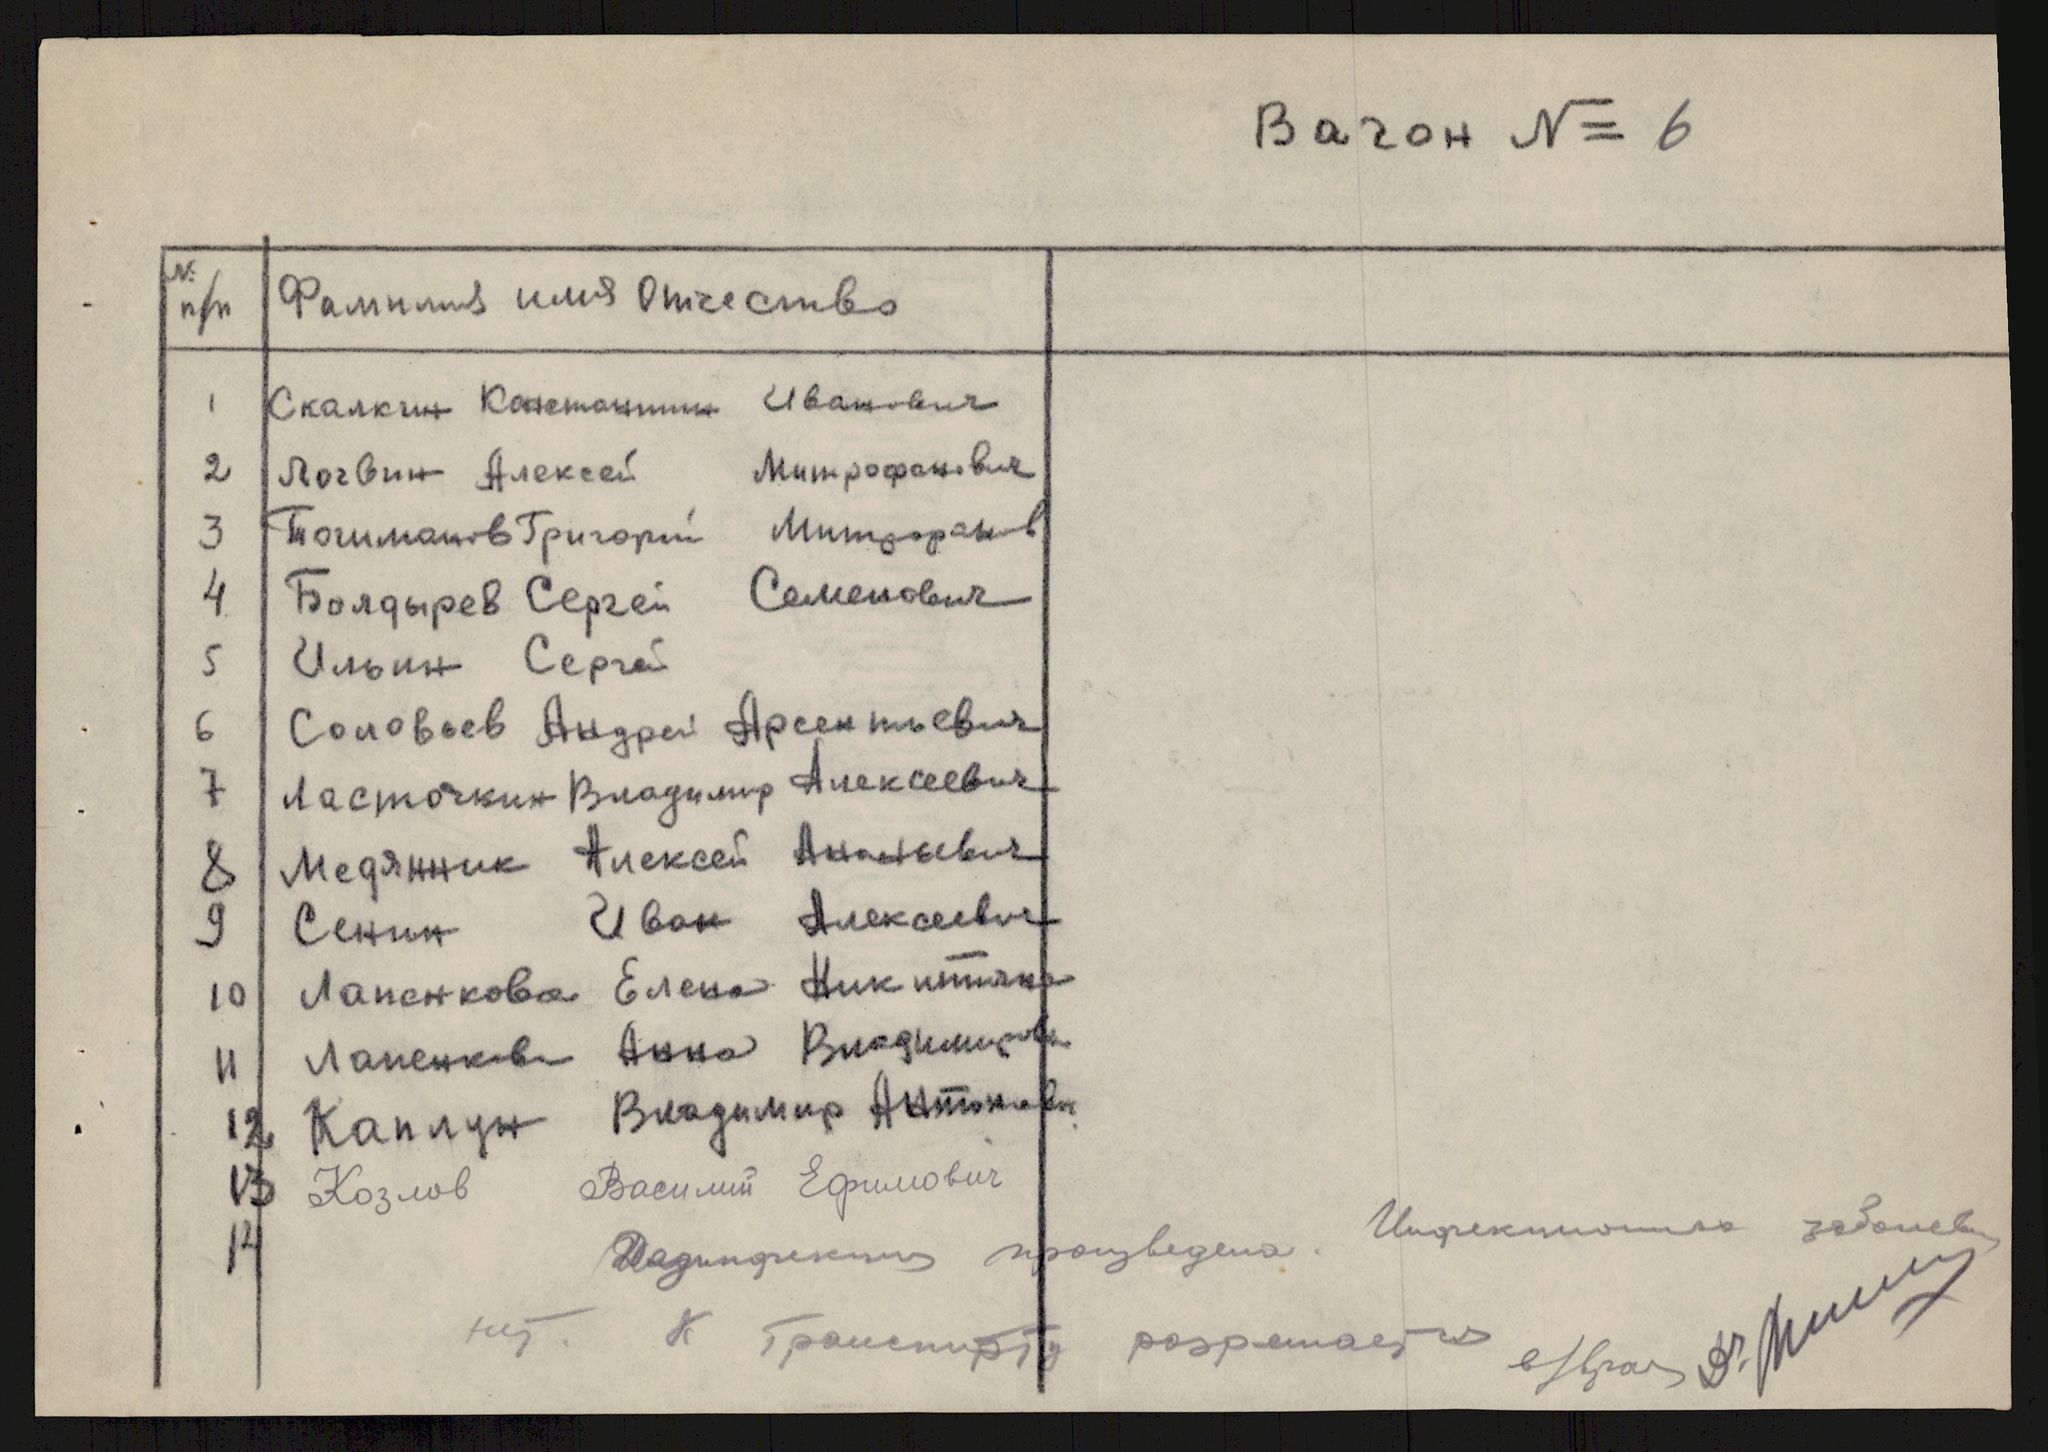 Вагон № 6
№ п/п Фамилия имя Отчество
1 Скалкин Константин Иванович
2 Логвин Алексей Митрофанович
3 Тогиманов Григорий Митрофанов
4 Болдырев Сергей Семенович
5 Ильин Сергей
6 Соловьев Андрей Арсентьевич
7 Ласточкин Владимир Алексеевич
8 Медянник Алексей Ананьевич
9 Сенин Иван Алексеевич
10 Лапенкова Елена Никитична
11 Лапенкова Анна Владимировн
12 Каплун Владимир Антонови
13 Козлов Василий Ефимович
14
Дезинфекция произведена. Инфекционных заболеван
нет. К транспорту разрешается
в/врач Др.